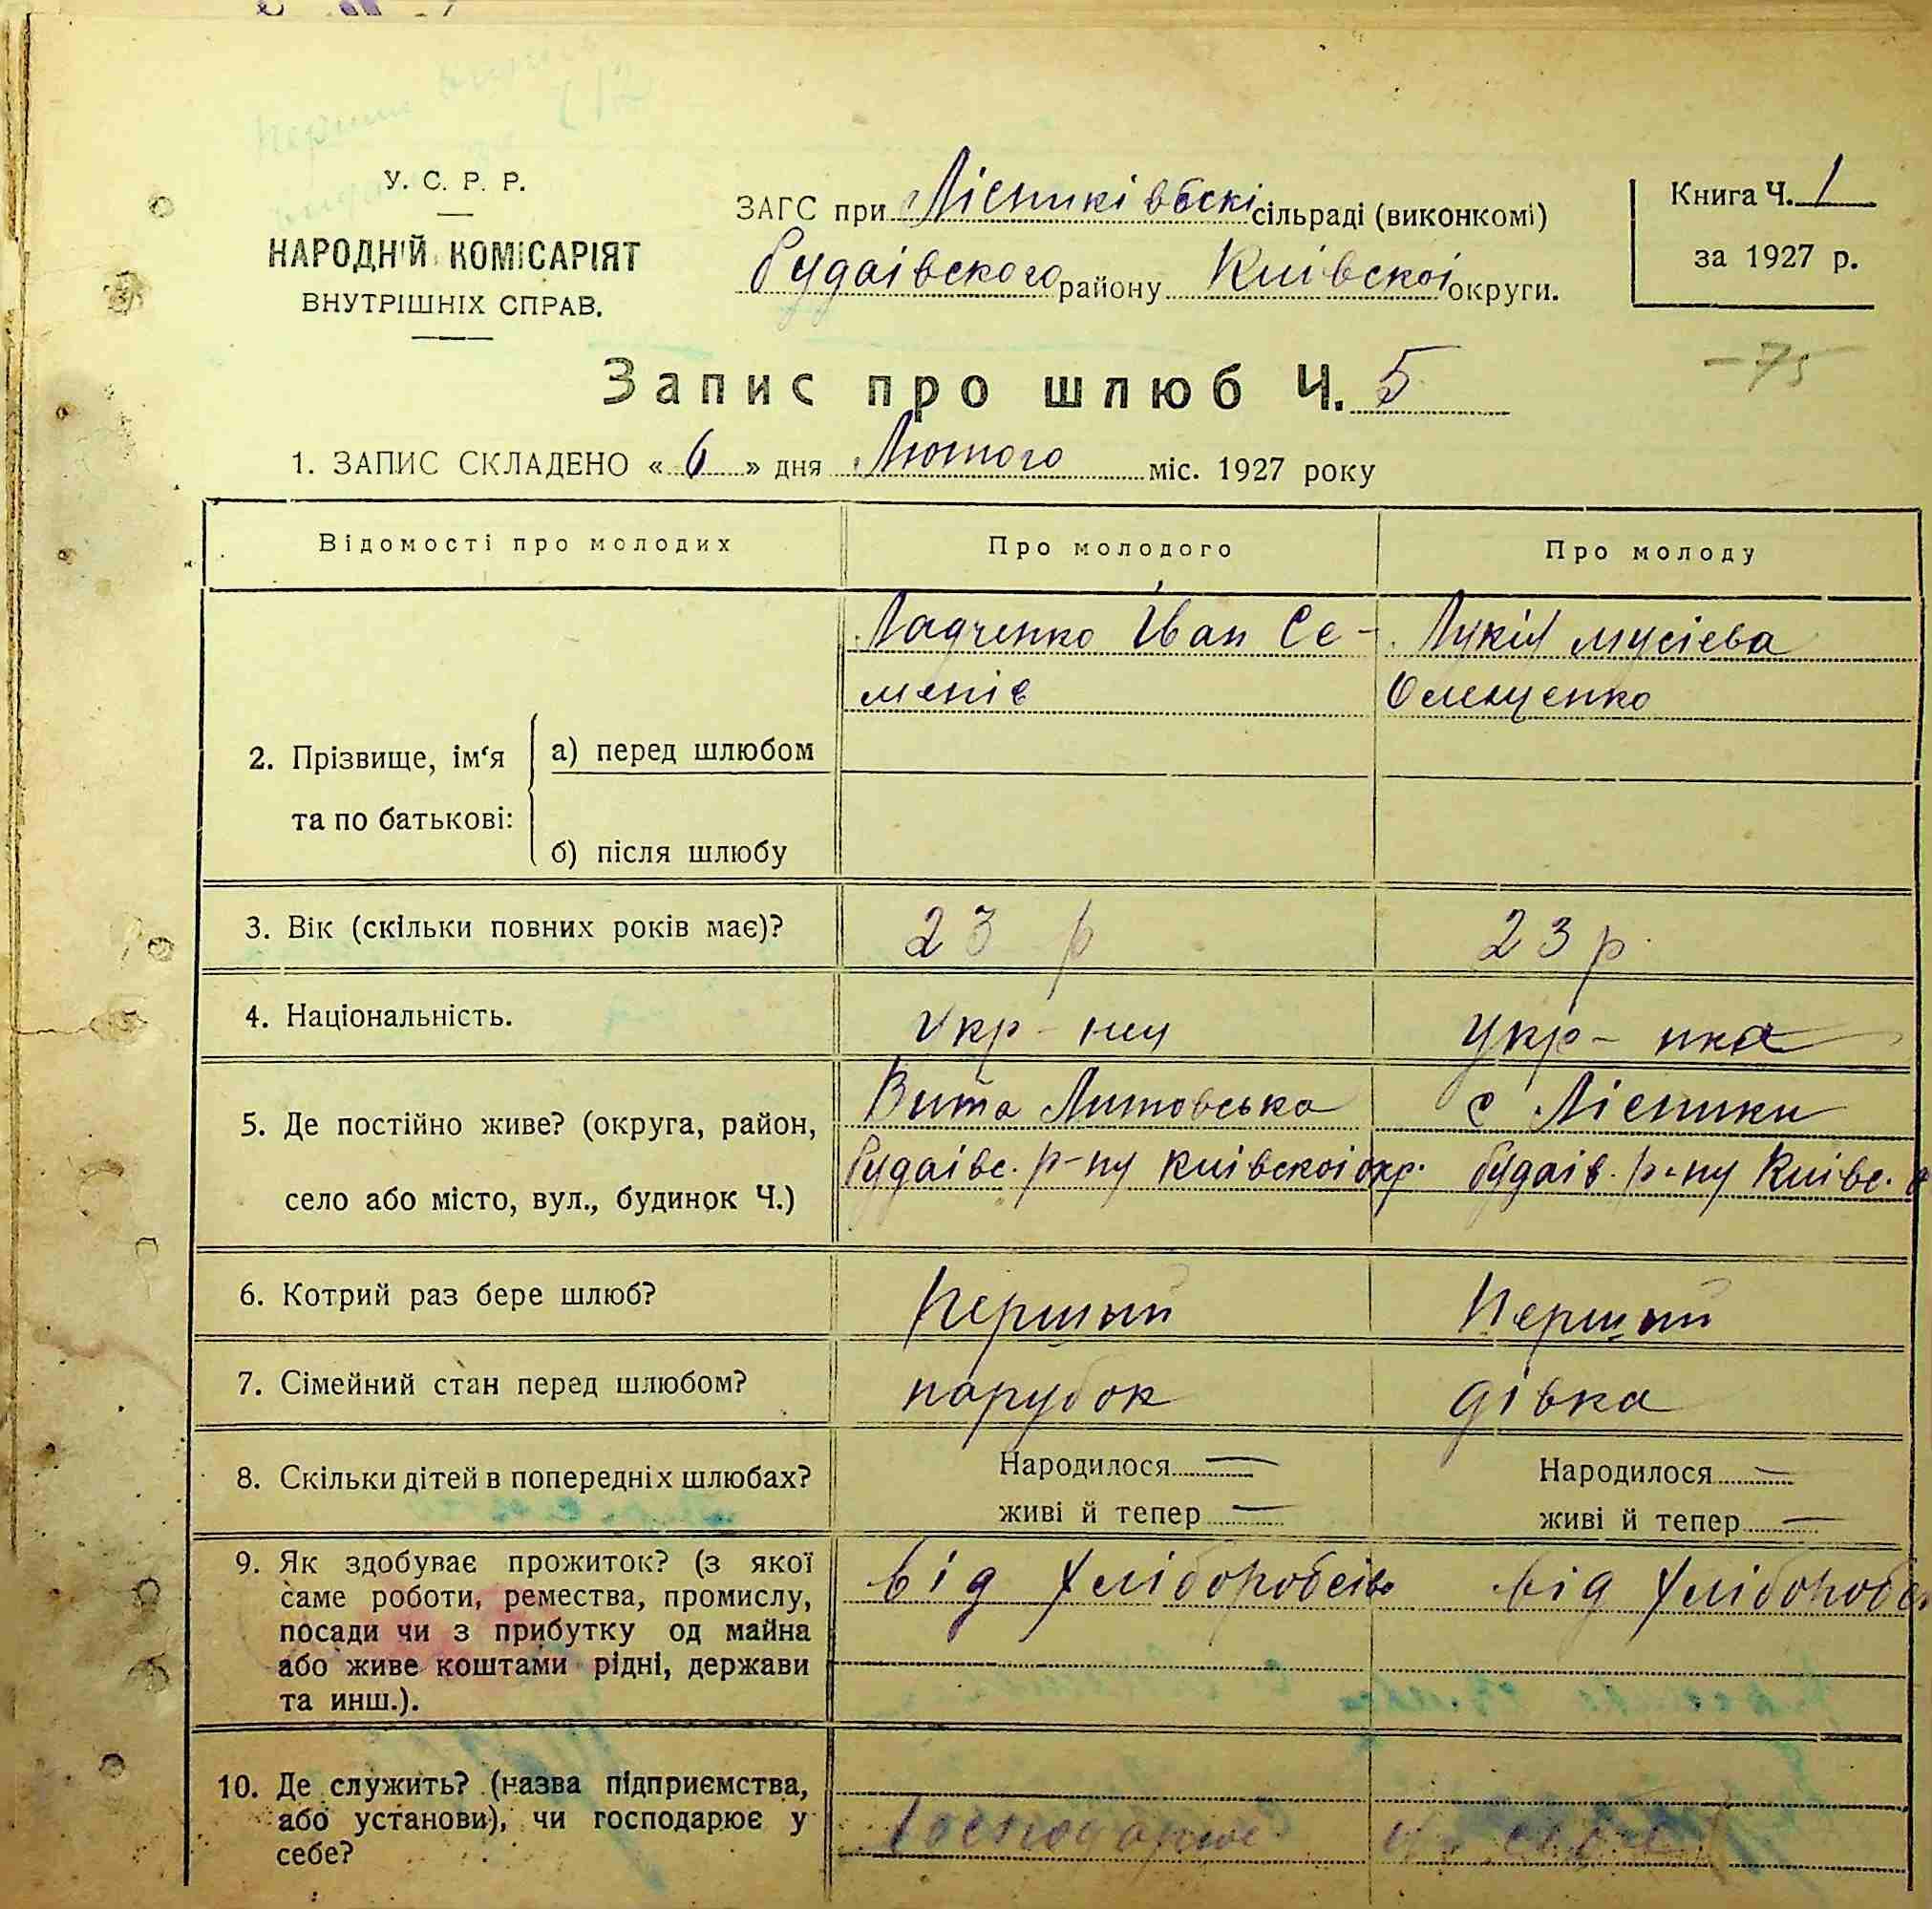 У. С. Р. Р.
НАРОДНІЙ КОМІСАРІЯТ
ВНУТРІШНІХ СПРАВ.
ЗАГС при Лісниківські сільраді (виконкомі)
Будаівского району Киівскоі округи.
Книга Ч. 1
за 1927 р.
– 75
Запис про шлюб Ч. 5
1. ЗАПИС СКЛАДЕНО « 6 » дня Лютого міс. 1927 року
Відомості про молодих
Про молодого
Про молоду
2. Прізвище, ім‘я та по батькові:
а) перед шлюбом
б) після шлюбу
Ладченко Іван Се-
менів
Лукія Мусієва
Олещенко
3. Вік (скільки повних років має)?
23 р
23 р.
4. Національність.
Укр-нец
Укр-нка
5. Де постійно живе? (округа, район,
село або місто, вул., будинок Ч.)
Вита Литовська
Будаівс. р-ну Киівскоі окр.
с Лісники
Будаів. р-ну Киівс. о
6. Котрий раз бере шлюб?
Перший
Перший
7. Сімейний стан перед шлюбом?
парубок
дівка
8. Скільки дітей в попередніх шлюбах?
Народилося —
живі й тепер —
Народилося —
живі й тепер —
9. Як здобуває прожиток? (з якої
саме роботи, ремества, промислу,
посади чи з прибутку од майна
або живе коштами рідні, держави
та инш.).
від хліборобсів
від хлібороб
10. Де служить? (назва підприємства,
або установи), чи господарює у
себе?
Господарює